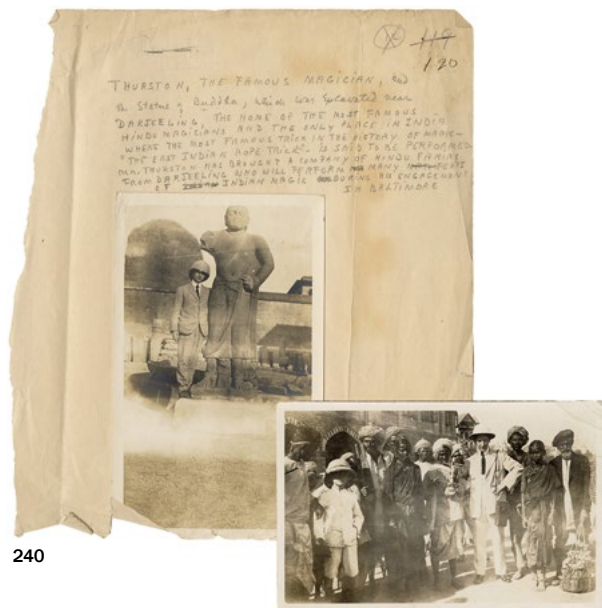 119
120
THURSTON, THE FAMOUS MAGICIAN, and
the Statue of Buddha, which was Excavated near
DARJEELING, THE HOME OF THE MOST FAMOUS
HINDU MAGICIANS AND THE ONLY PLACE IN INDIA
WHERE THE MOST FAMOUS TRICK IN THE HISTORY OF MAGIC—
"THE EAST INDIAN ROPE TRICK" IS SAID TO BE PERFORMED
MR. THURSTON HAS BROUGHT A COMPANY OF HINDU FAKIRS
FROM DARJEELING WHO WILL PERFORM MANY FEATS
OF INDIAN MAGIC DURING AN ENGAGEMENT
IN BALTIMORE
240